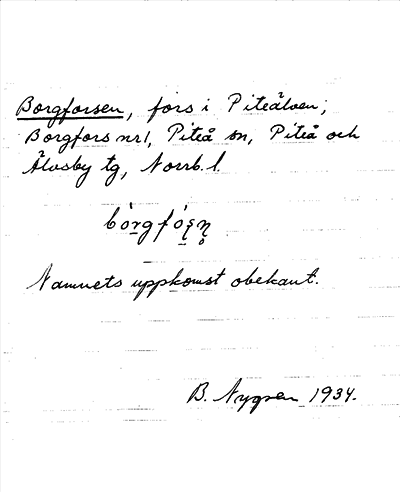 Borgforsen, fors i Piteälven;
Borgfors nr 1, Piteå sn, Piteå och
Älvsby tg, Norrb. l.
bòrgfó̱ʂn̥
Namnets uppkomst obekant.
B. Nygren 1934.